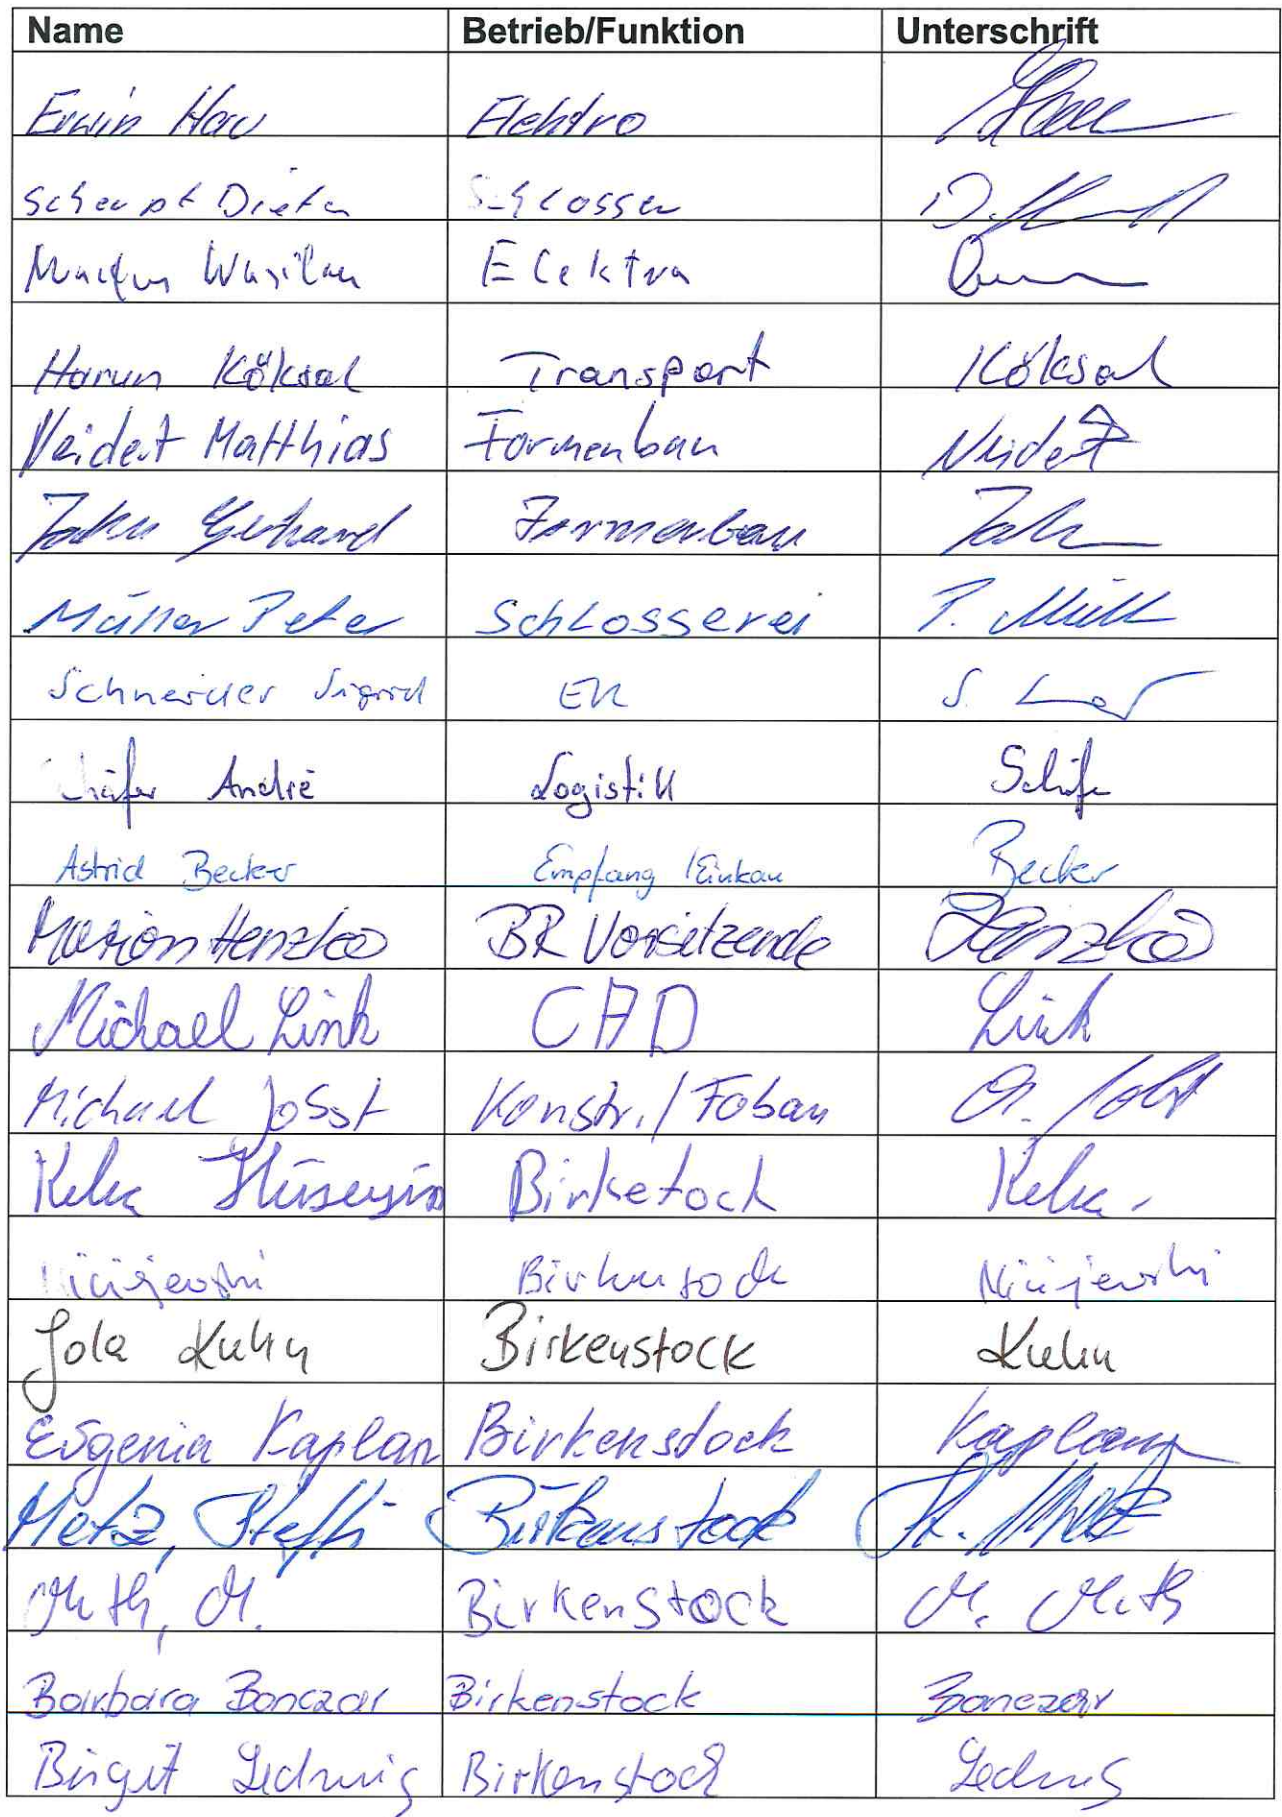 Name Betrieb/Funktion Unterschrift
Erwin Hau Elektro
Dieter Schlosser
Elektro
Harun Köksal Transport Köksal
Neidert Matthias Formenbau Neidert
Gerhard Formenbau
Müller Peter Schlosserei P. Müll
Schneider Sigrid EK S.
Schäfer André Logistik Schäfer
Astrid Becker Empfang / Einkau Becker
Marion Henzko BR Vorsitzende Henzko
Michael Link CAD Link
Michael Jobst Konstr. / Fobau
Hüseyin Birkestock
Birkenstock
Jola Kuhn Birkenstock Kuhn
Evgenia Kaplan Birkenstock Kaplan
Metz, Steffi Birkenstock St. Metz
Muth, M. Birkenstock M. Muth
Barbara Bonczar Birkenstock Bonczar
Birgit Ledwig Birkenstock Ledwig